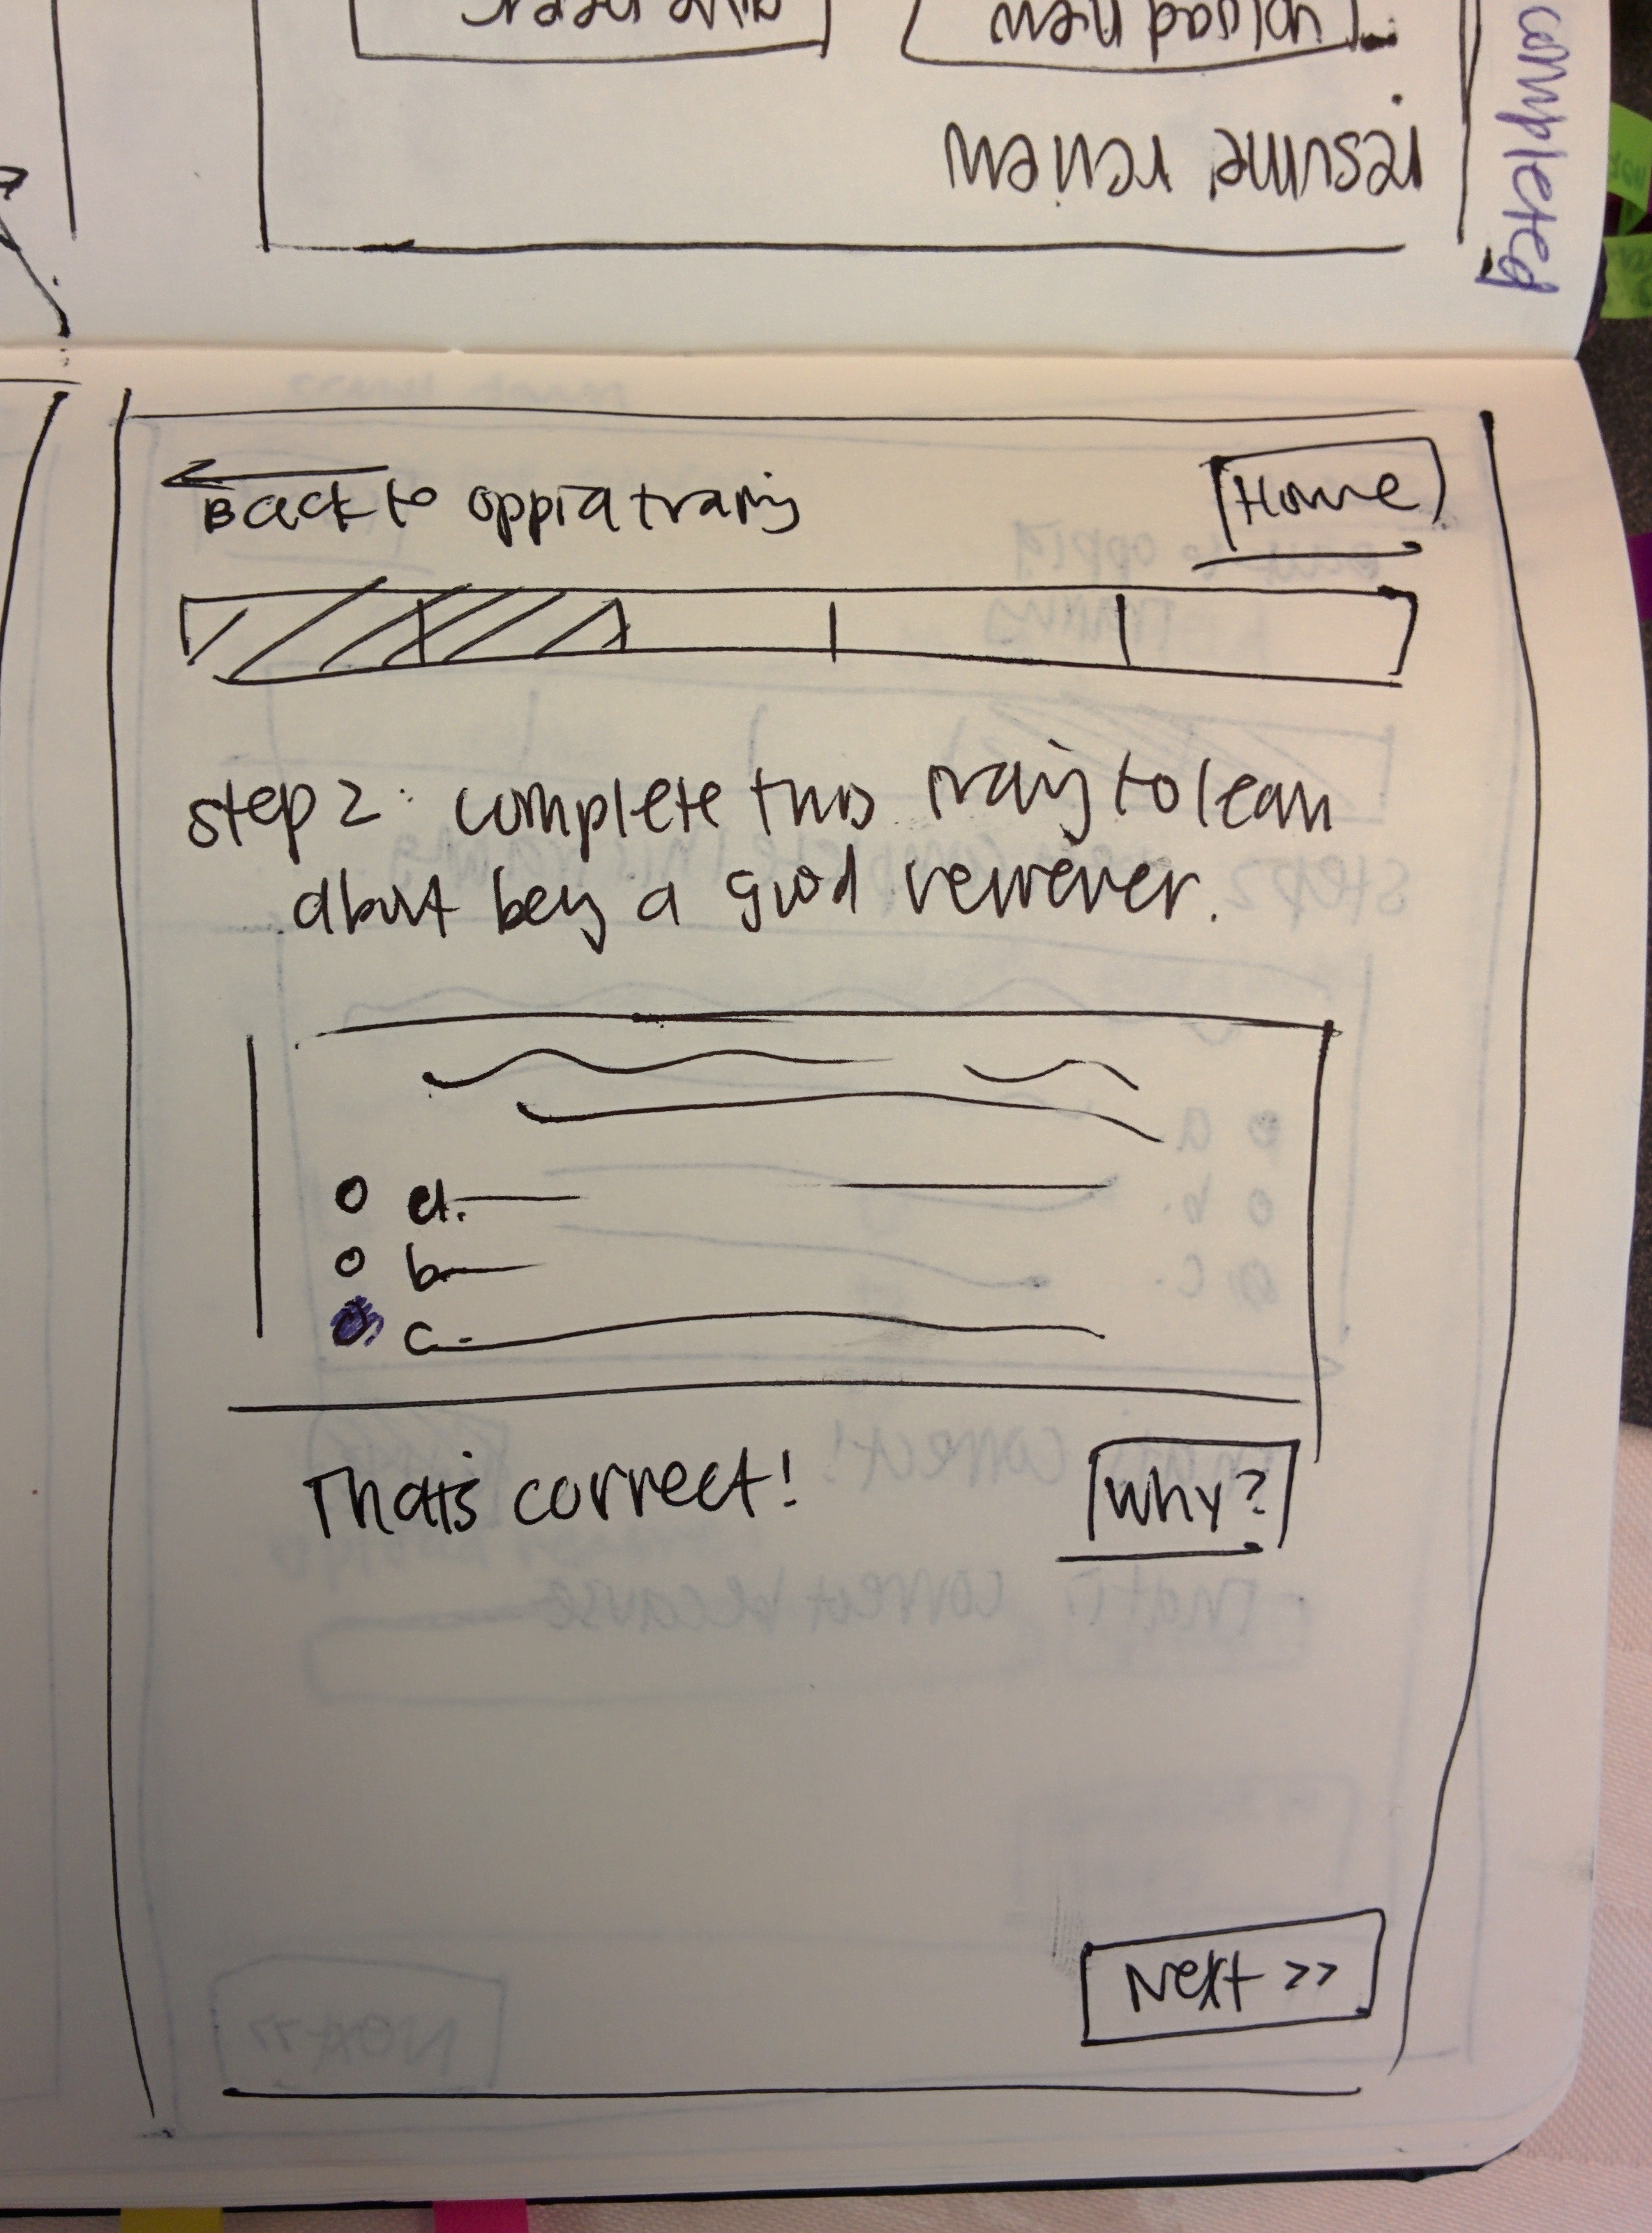 upload new
resume review
completed
Back to oppia traing
Home
step 2: complete this traing to learn
about beng a good reviewer.
a.
b.
c.
Thats correct!
Why?
Next >>